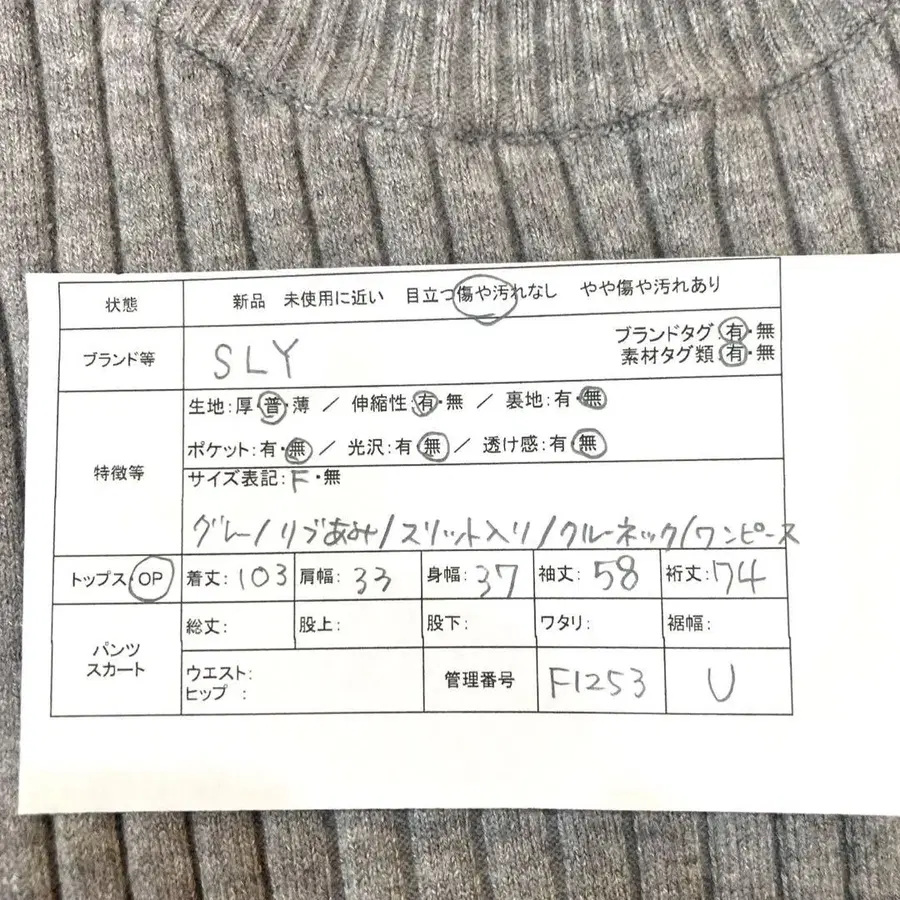 状態 新品 未使用に近い 目立つ傷や汚れなし やや傷や汚れあり
ブランド等 SLY ブランドタグ:有・無
素材タグ類:有・無
特徴等 生地:厚・普・薄 / 伸縮性:有・無 / 裏地:有・無
ポケット:有・無 / 光沢:有・無 / 透け感:有・無
サイズ表記:F・無
グレー/リブあみ/スリット入り/クルーネック/ワンピース
トップス・OP 着丈:103 肩幅:33 身幅:37 袖丈:58 裄丈:74
パンツ スカート 総丈: 股上: 股下: ワタリ: 裾幅:
ウエスト:
ヒップ : 管理番号 F1253 U